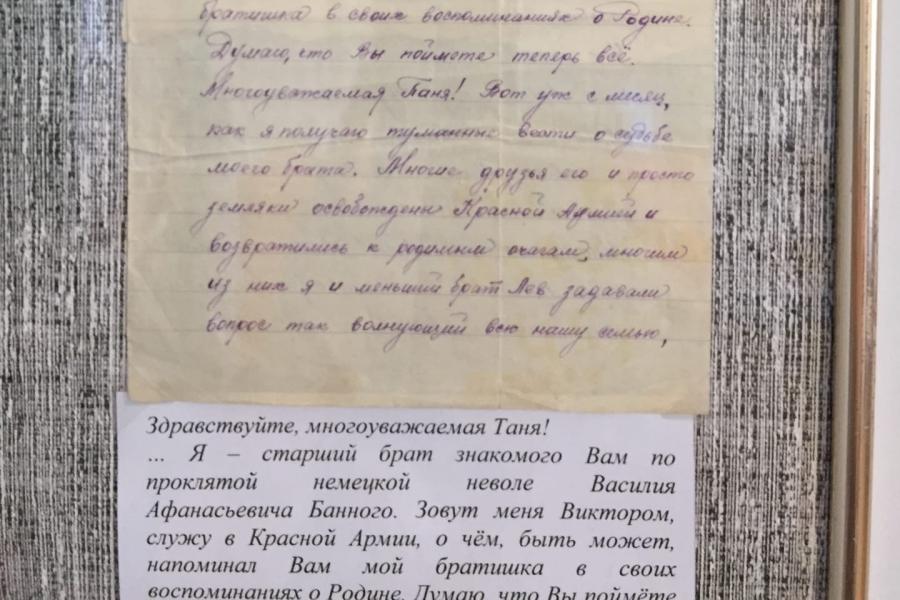 братишка в своих воспоминаниях о Родине.
Думаю, что Вы поймете теперь всё.
Многоуважаемая Таня! Вот уж с месяц,
как я получаю туманные вести о судьбе
моего брата. Многие друзья его и просто
земляки освобождены Красной Армией и
возвратились к родимым очагам, многим
из них я и меньший брат Лев задавали
вопрос так волнующий всю нашу семью,
Здравствуйте, многоуважаемая Таня!
... Я – старший брат знакомого Вам по
проклятой немецкой неволе Василия
Афанасьевича Банного. Зовут меня Виктором,
служу в Красной Армии, о чём, быть может,
напоминал Вам мой братишка в своих
воспоминаниях о Родине. Думаю, что Вы поймёте